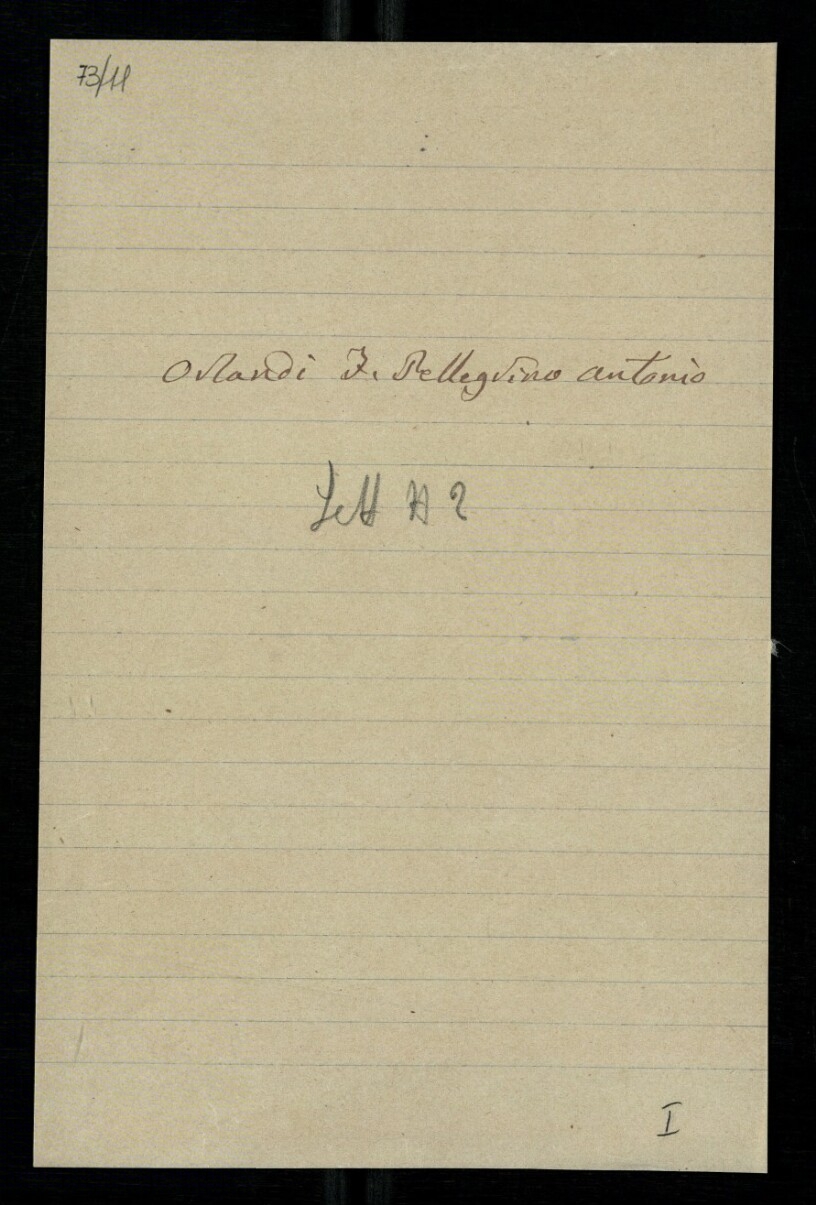 73/11
Orlandi F. Pellegrino Antonio
Lett N 2
I